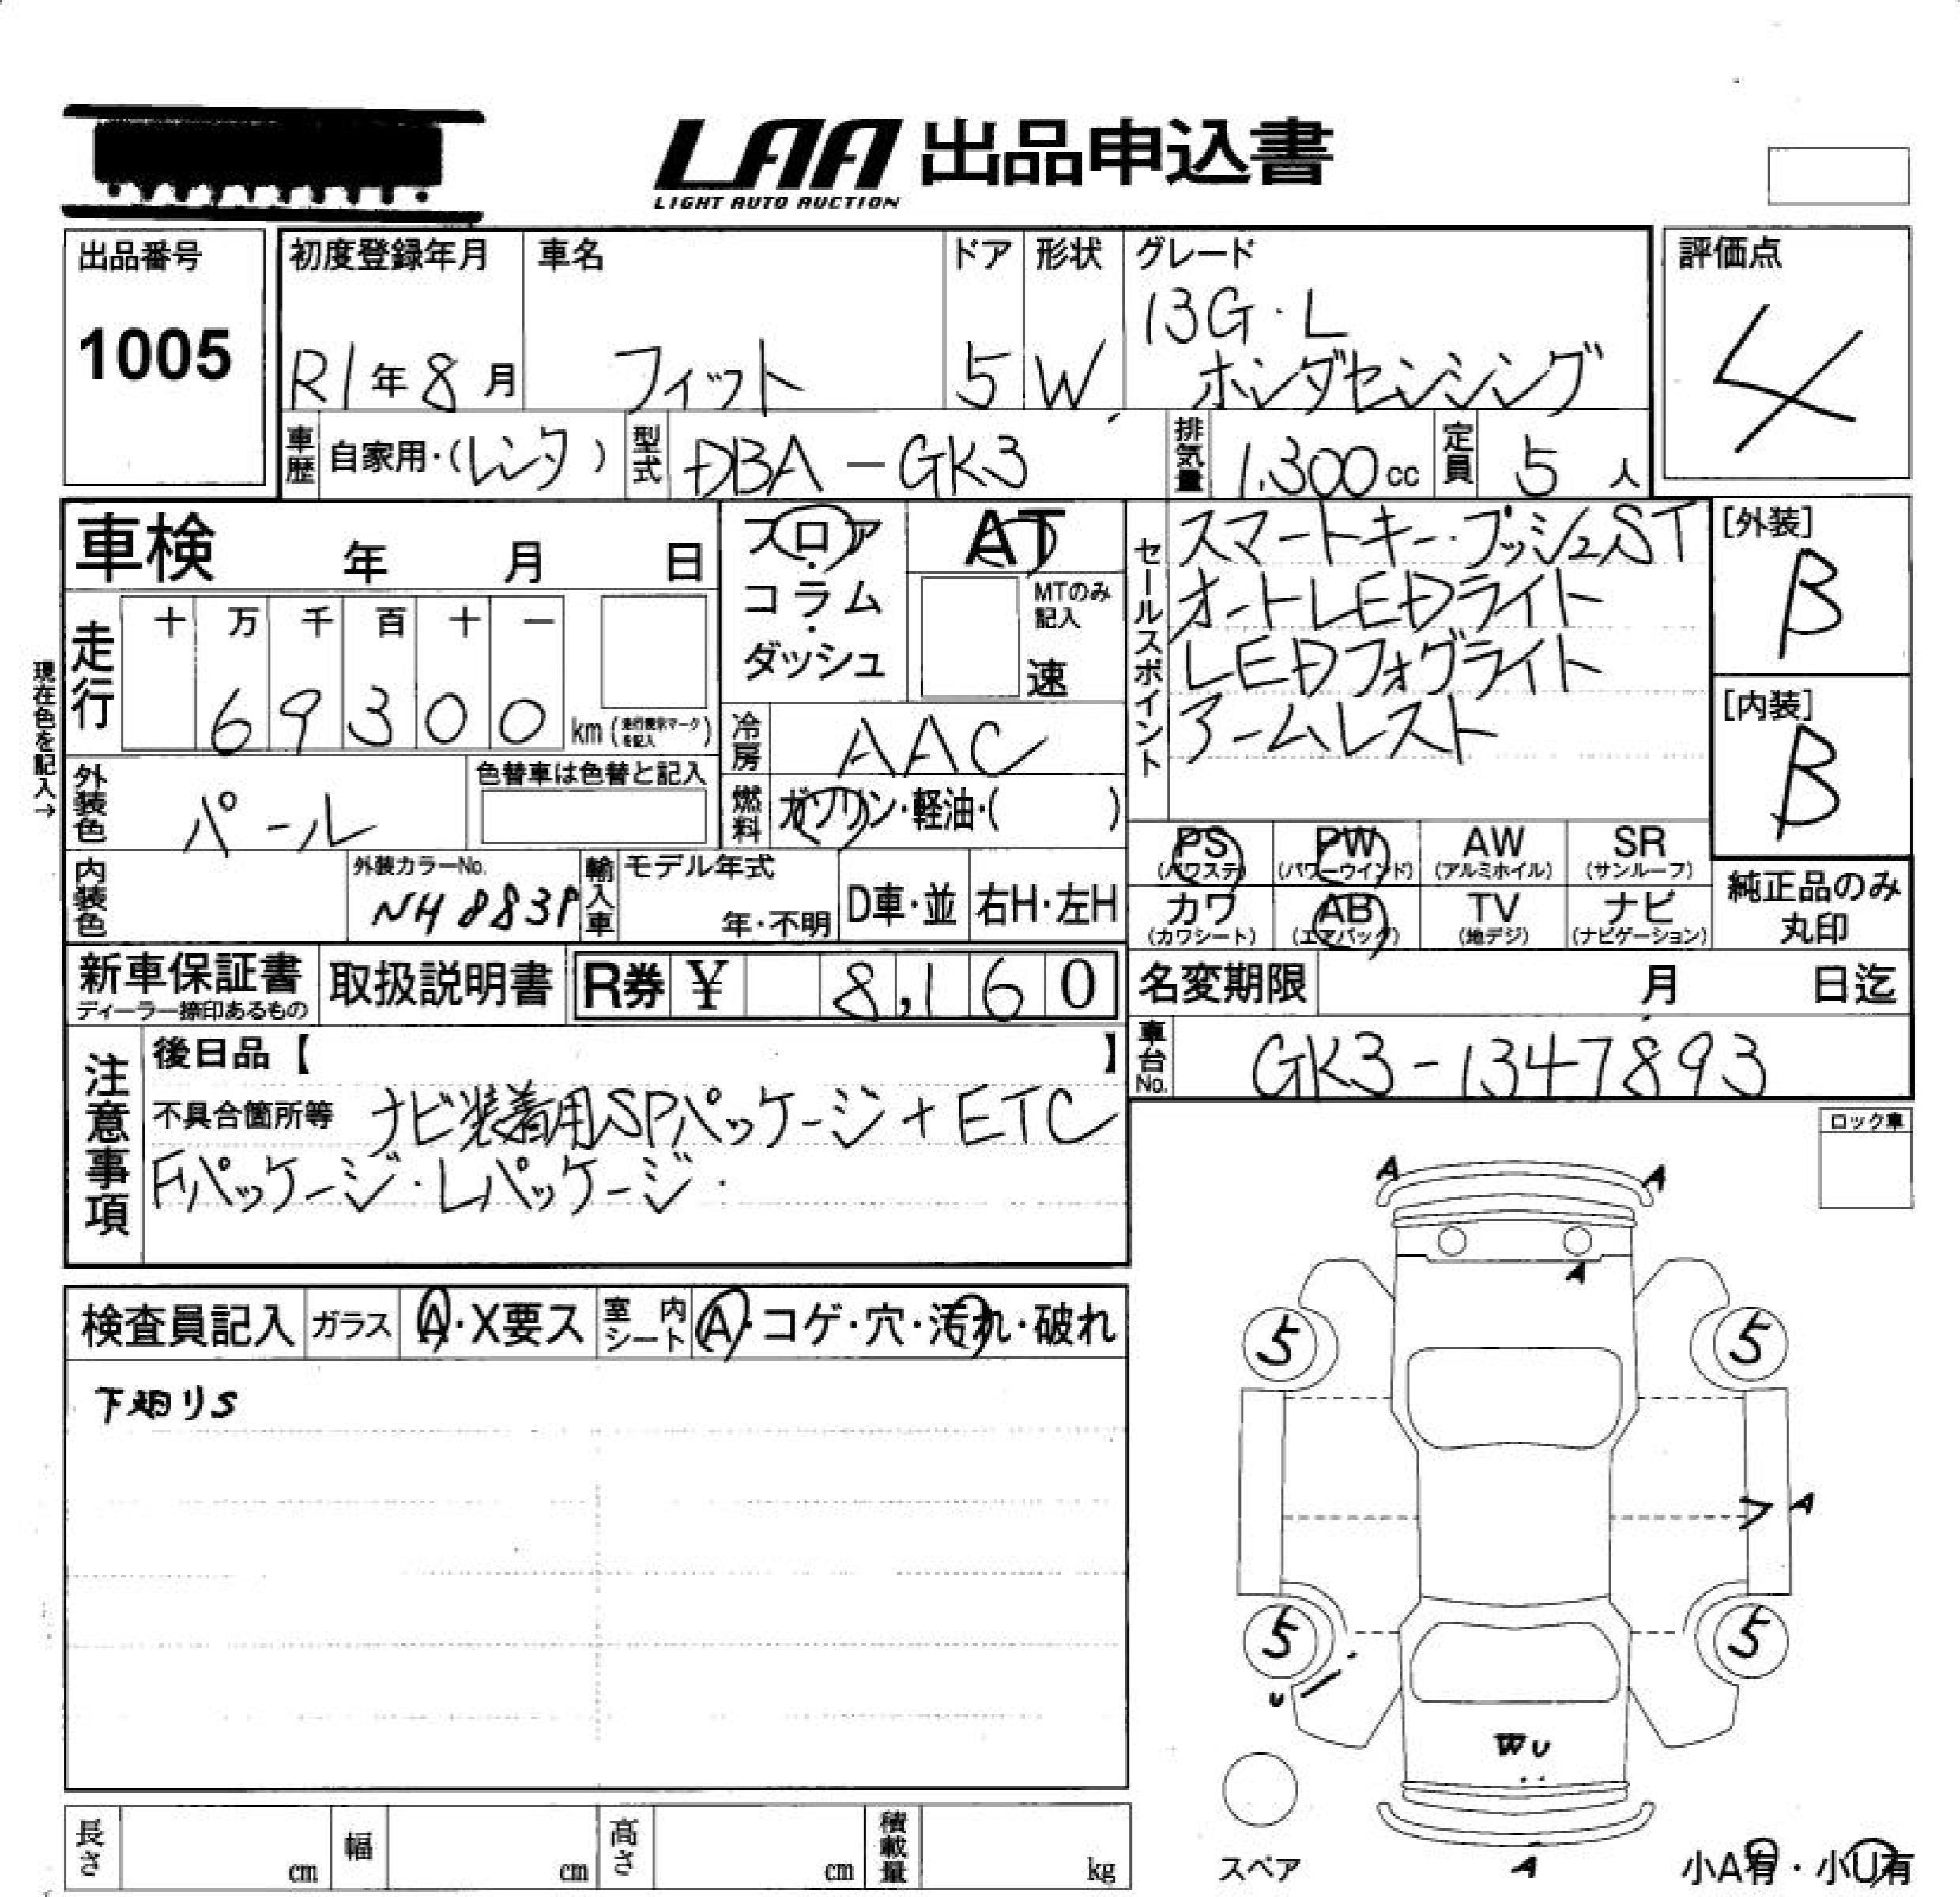 LAA 出品申込書
LIGHT AUTO AUCTION
出品番号
1005
初度登録年月
R1年8月
車名
フィット
ドア
5
形状
W
グレード
13G・L
ホンダセンシング
評価点
4
車歴
自家用・(レンタ)
型式
DBA-GK3
排気量
1,300cc
定員
5人
車検 年 月 日
フロア・コラム・ダッシュ
AT
MTのみ記入
速
セールスポイント
スマートキー・プッシュST
オートLEDライト
LEDフォグライト
アームレスト
[外装]
B
[内装]
B
現在色を記入→
走行
十 万 千 百 十 一
6 9 3 0 0 km (走行表示マークを記入)
冷房
AAC
外装色
パール
色替車は色替と記入
燃料
ガソリン・軽油・( )
PS (パワステ)
PW (パワーウインド)
AW (アルミホイル)
SR (サンルーフ)
カワ (カワシート)
AB (エアバッグ)
TV (地デジ)
ナビ (ナビゲーション)
純正品のみ
丸印
内装色
外装カラーNo.
NH883P
輸入車
モデル年式
年・不明
D車・並
右H・左H
新車保証書
ディーラー捺印あるもの
取扱説明書
R券 ¥ 8,160
名変期限 月 日迄
車台No.
GK3-1347893
注意事項
後日品【 】
不具合箇所等 ナビ装着用SPパッケージ+ETC
Fパッケージ・Lパッケージ・
ロック車
検査員記入
ガラス
A・X要ス
室内シート
A・コゲ・穴・汚れ・破れ
下廻りS
A
A
A
5
5
A
5
5
U
WU
A
スペア
小A有・小U有
長さ cm
幅 cm
高さ cm
積載量 kg